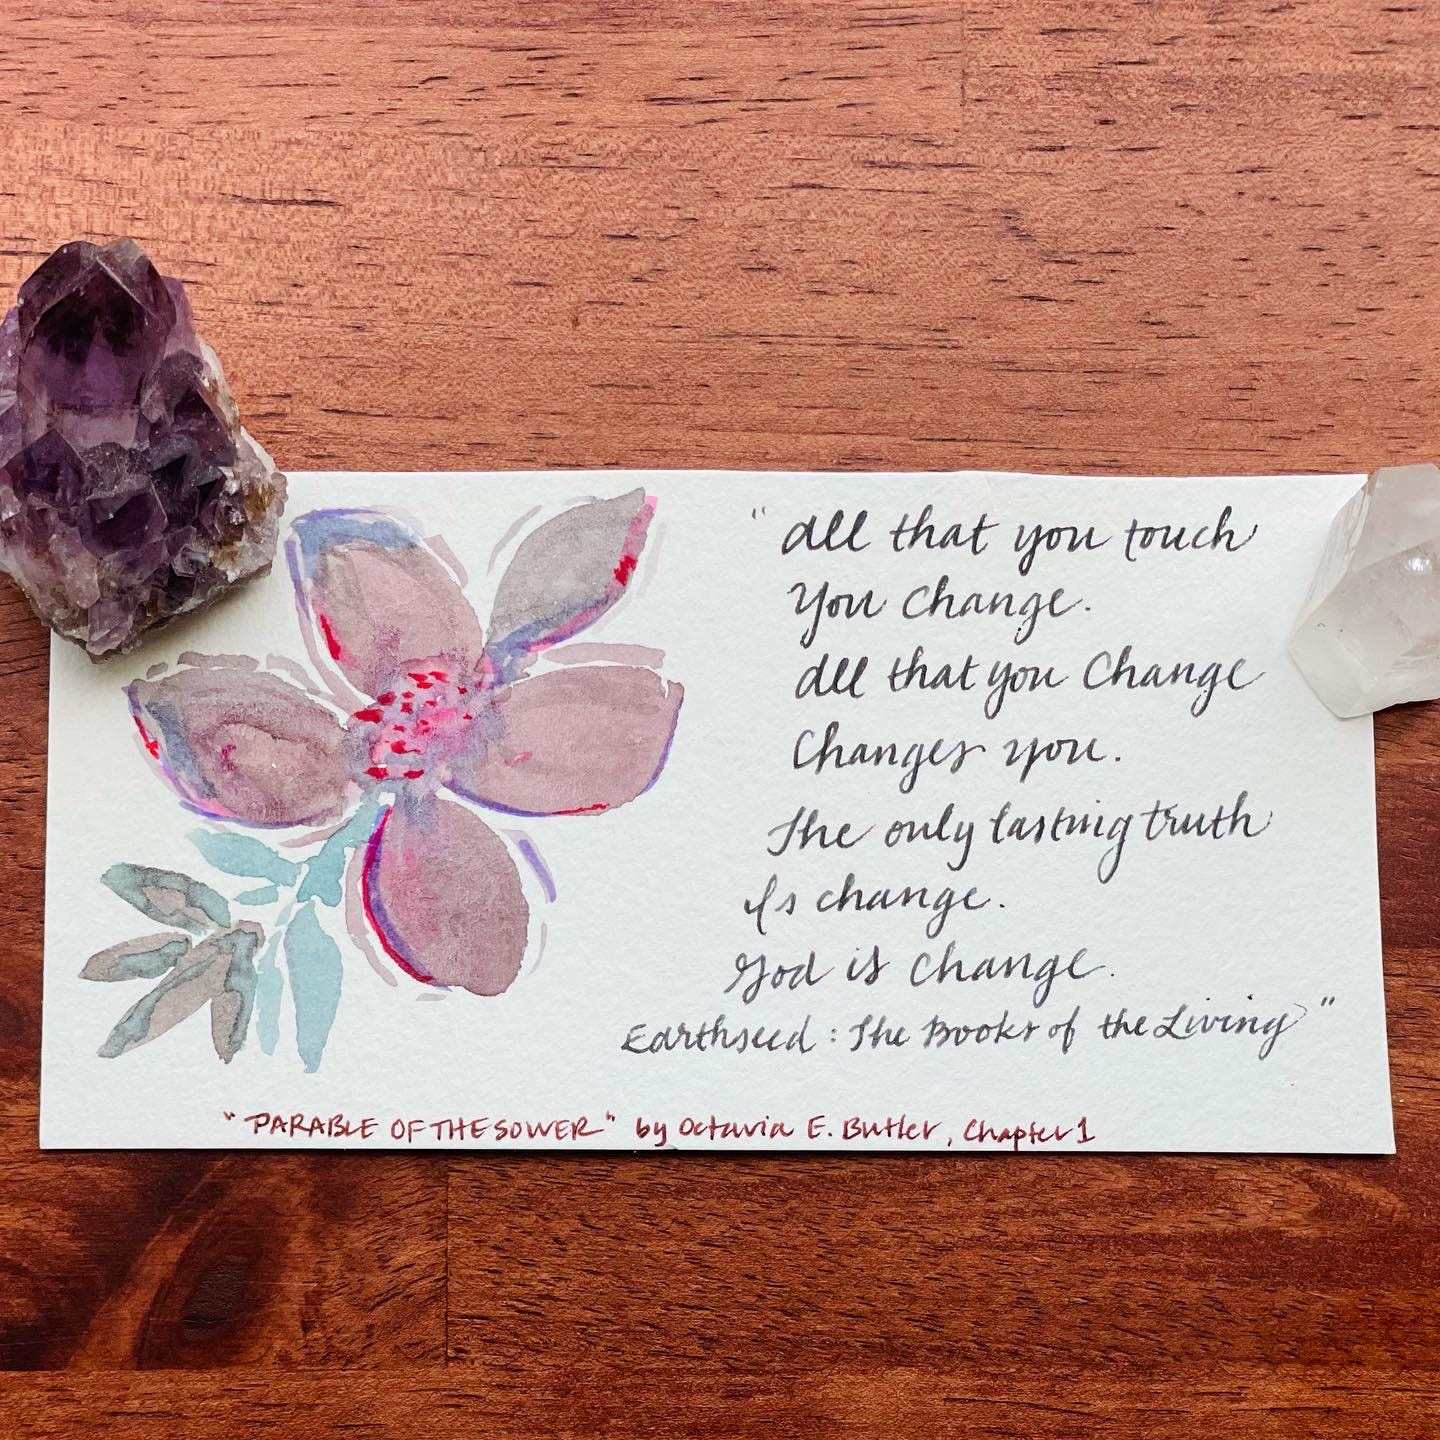 "All that you touch
You Change.
All that you Change
Changes you.
The only lasting truth
Is change.
God is change.
Earthseed: The Books of the Living"
"PARABLE OF THE SOWER" by Octavia E. Butler, Chapter 1